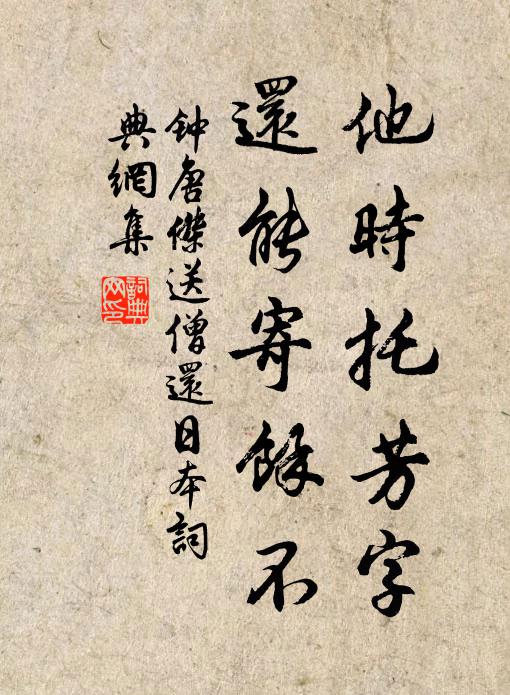 他時托芳字
還能寄餘不
钟唐傑送僧還日本詞
典網集
詞典網印